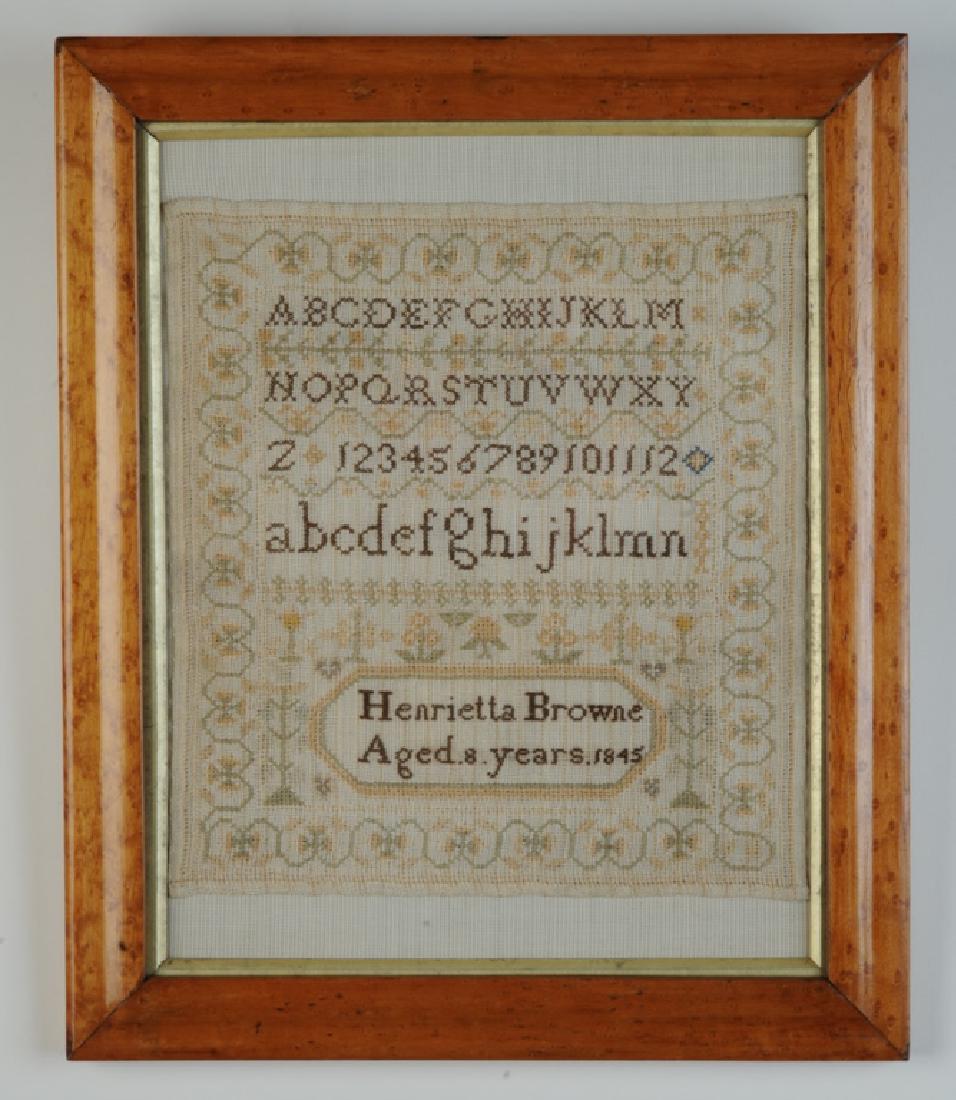 ABCDEFGHIJKLM
NOPQRSTUVWXY
Z 123456789101112
abcdefghijklmn
Henrietta Browne
Aged.8.years.1845